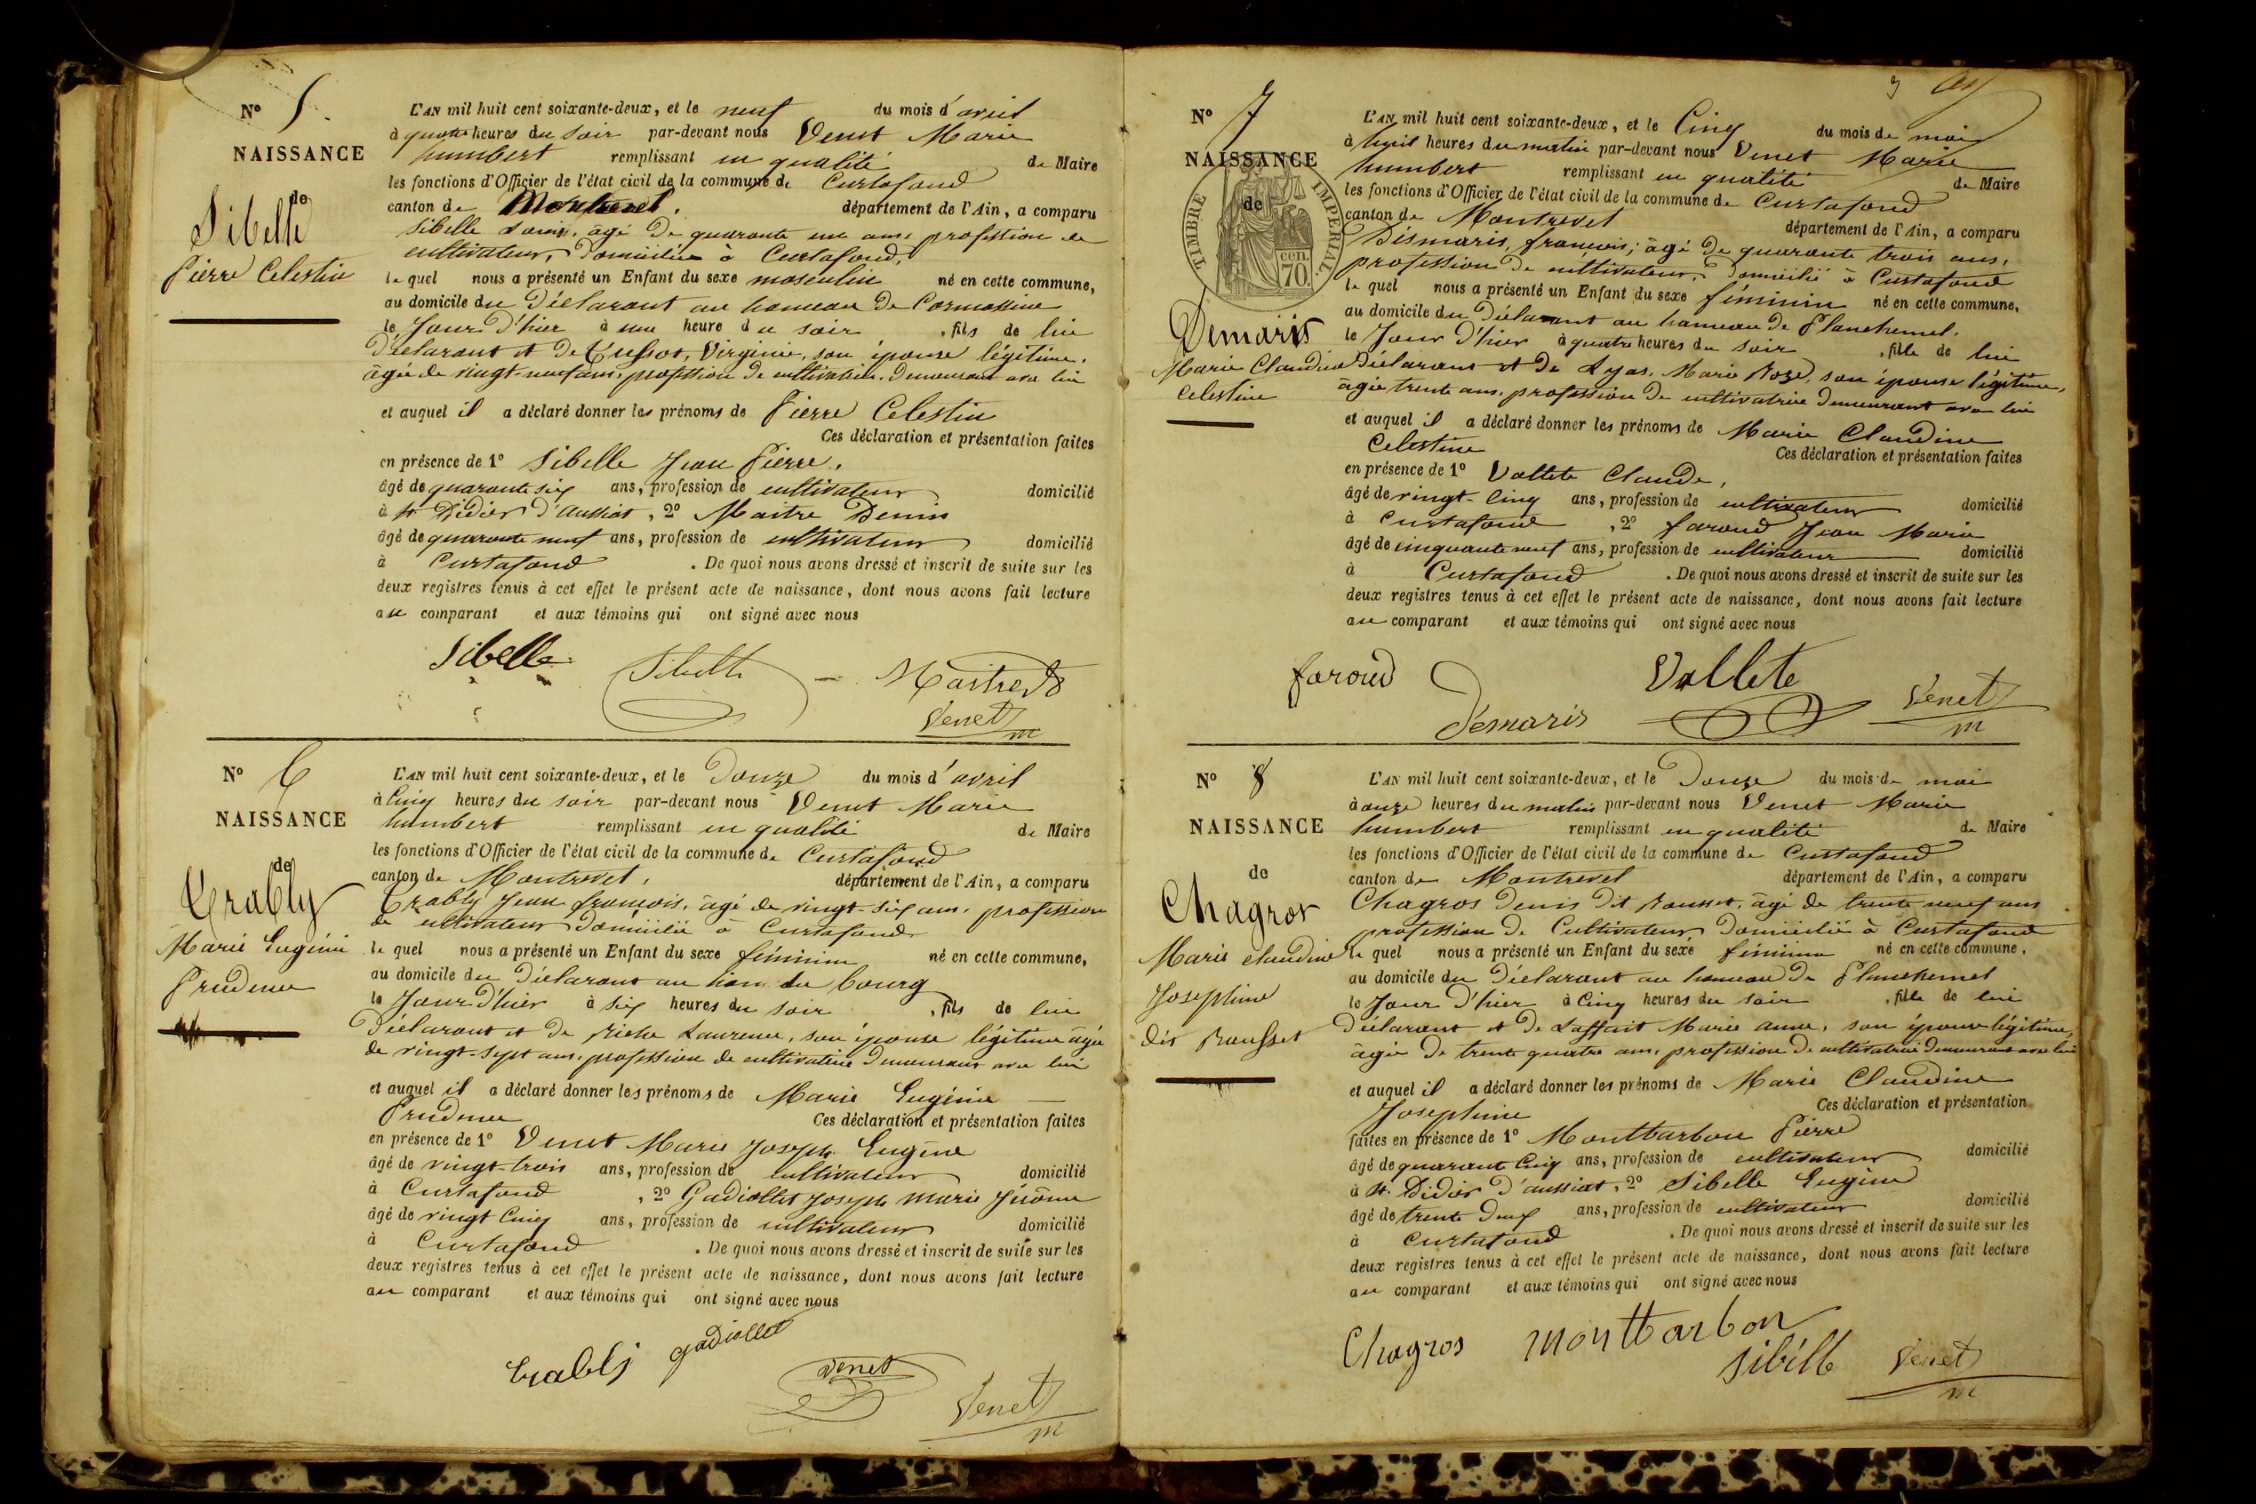 N° 5.
NAISSANCE
de
Sibelle
Pierre Celestin
L'AN mil huit cent soixante-deux, et le neuf du mois d'avril
à quatre heures du soir par-devant nous Venet Marie
humbert remplissant en qualité de Maire
les fonctions d'Officier de l'état civil de la commune de Curtafond
canton de Montrevel. département de l'Ain, a comparu
Sibelle Louis, âgé de quarante un ans, profession de
cultivateur, Domicilié à Curtafond,
le quel nous a présenté un Enfant du sexe masculin né en cette commune,
au domicile du Déclarant au hameau de Cormassine
le Jour d'hier à une heure du soir, fils de lui
Déclarant et de Virginie, son épouse légitime.
âgée de vingt-neuf ans, profession de cultivatrice. demeurant avec lui
et auquel il a déclaré donner les prénoms de Pierre Celestin
Ces déclaration et présentation faites
en présence de 1° Sibelle Jean Pierre,
âgé de quarante six ans, profession de cultivateur domicilié
à St Didier d'aussiat, 2° Maitre Denis
âgé de quarante neuf ans, profession de cultivateur domicilié
à Curtafond. De quoi nous avons dressé et inscrit de suite sur les
deux registres tenus à cet effet le présent acte de naissance, dont nous avons fait lecture
au comparant et aux témoins qui ont signé avec nous
Sibelle Sibelle Maitre D
Venet
m
N° 6
NAISSANCE
de
Crably
Marie Eugénie
Prudence
L'AN mil huit cent soixante-deux, et le Douze du mois d'avril
à Cinq heures du soir par-devant nous Venet Marie
humbert remplissant en qualité de Maire
les fonctions d'Officier de l'état civil de la commune de Curtafond
canton de Montrevel, département de l'Ain, a comparu
Crably Jean françois, âgé de vingt-six ans, profession
de cultivateur Domicilié à Curtafond
le quel nous a présenté un Enfant du sexe féminin né en cette commune,
au domicile du Déclarant au ham du bourg
le Jour d'hier à six heures du soir, fils de lui
Déclarant et de Riche Laurence, son épouse légitime âgée
de vingt-sept ans, profession de cultivatrice demeurant avec lui
et auquel il a déclaré donner les prénoms de Marie Eugénie
Prudence Ces déclaration et présentation faites
en présence de 1° Venet Marie Joseph Eugène
âgé de vingt-trois ans, profession de cultivateur domicilié
à Curtafond, 2° Gadiollet Joseph Marie Jérôme
âgé de vingt Cinq ans, profession de cultivateur domicilié
à Curtafond. De quoi nous avons dressé et inscrit de suite sur les
deux registres tenus à cet effet le présent acte de naissance, dont nous avons fait lecture
au comparant et aux témoins qui ont signé avec nous
Crably gadiollet
Venet
Venet
m
3
N° 7
NAISSANCE
de
TIMBRE IMPERIAL
70 cen.
Demaris
Marie Claudine
Celestine
L'AN mil huit cent soixante-deux, et le Cinq du mois de mai
à huit heures du matin par-devant nous Venet Marie
humbert remplissant en qualité de Maire
les fonctions d'Officier de l'état civil de la commune de Curtafond
canton de Montrevel département de l'Ain, a comparu
Désmaris, françois, âgé de quarante trois ans,
profession de cultivateur, Domicilié à Curtafond
le quel nous a présenté un Enfant du sexe féminin né en cette commune,
au domicile du Déclarant au hameau de Planchemel.
le Jour d'hier à quatre heures du soir, fille de lui
Déclarant et de Lyas, Marie Roze, son épouse légitime,
âgée trente ans, profession de cultivatrice demeurant avec lui
et auquel il a déclaré donner les prénoms de Marie Claudine
Celestine Ces déclaration et présentation faites
en présence de 1° Vallete Claude,
âgé de vingt-Cinq ans, profession de cultivateur domicilié
à Curtafond, 2° faroud Jean Marie
âgé de cinquante neuf ans, profession de cultivateur domicilié
à Curtafond. De quoi nous avons dressé et inscrit de suite sur les
deux registres tenus à cet effet le présent acte de naissance, dont nous avons fait lecture
au comparant et aux témoins qui ont signé avec nous
faroud Vallete
Démaris Venet
m
N° 8
NAISSANCE
de
Chagros
Marie claudine
Josephine
dit Rousset
L'AN mil huit cent soixante-deux, et le Douze du mois de mai
à onze heures du matin par-devant nous Venet Marie
humbert remplissant en qualité de Maire
les fonctions d'Officier de l'état civil de la commune de Curtafond
canton de Montrevel département de l'Ain, a comparu
Chagros Denis dit Rousset, âgé de trente neuf ans
profession de Cultivateur Domicilié à Curtafond
le quel nous a présenté un Enfant du sexe féminin né en cette commune,
au domicile du Déclarant au hameau de Planchemel
le Jour d'hier à Cinq heures du soir, fille de lui
Déclarant et de Laffait Marie anne, son épouse légitime,
âgée de trente quatre ans, profession de cultivatrice demeurant avec lui
et auquel il a déclaré donner les prénoms de Marie Claudine
Josephine Ces déclaration et présentation
faites en présence de 1° Montbarbon Pierre
âgé de quarante Cinq ans, profession de cultivateur domicilié
à St Didier d'aussiat, 2° Sibelle Eugène
âgé de trente Deux ans, profession de cultivateur domicilié
à Curtafond. De quoi nous avons dressé et inscrit de suite sur les
deux registres tenus à cet effet le présent acte de naissance, dont nous avons fait lecture
au comparant et aux témoins qui ont signé avec nous
Chagros montbarbon
Sibelle Venet
m